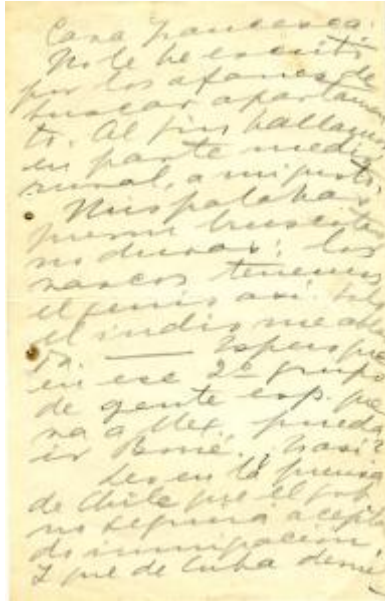 Cara Francesca:
No le he escrito
por los afanes de
buscar apartamen
to. Al fin hallamos
en parte medio
rural, a mi gusto.
Mis palabras
fueron bruscas
no duras; los
vascos tenemos
el genio así. Solo
el indio me
Espero que
en ese 2º grupo
de gente esp. que
va a Mex. pueda
ir
Leo en la prensa
de Chile que el gob.
no seguirá acepta
do inmigración,
I que de Cuba